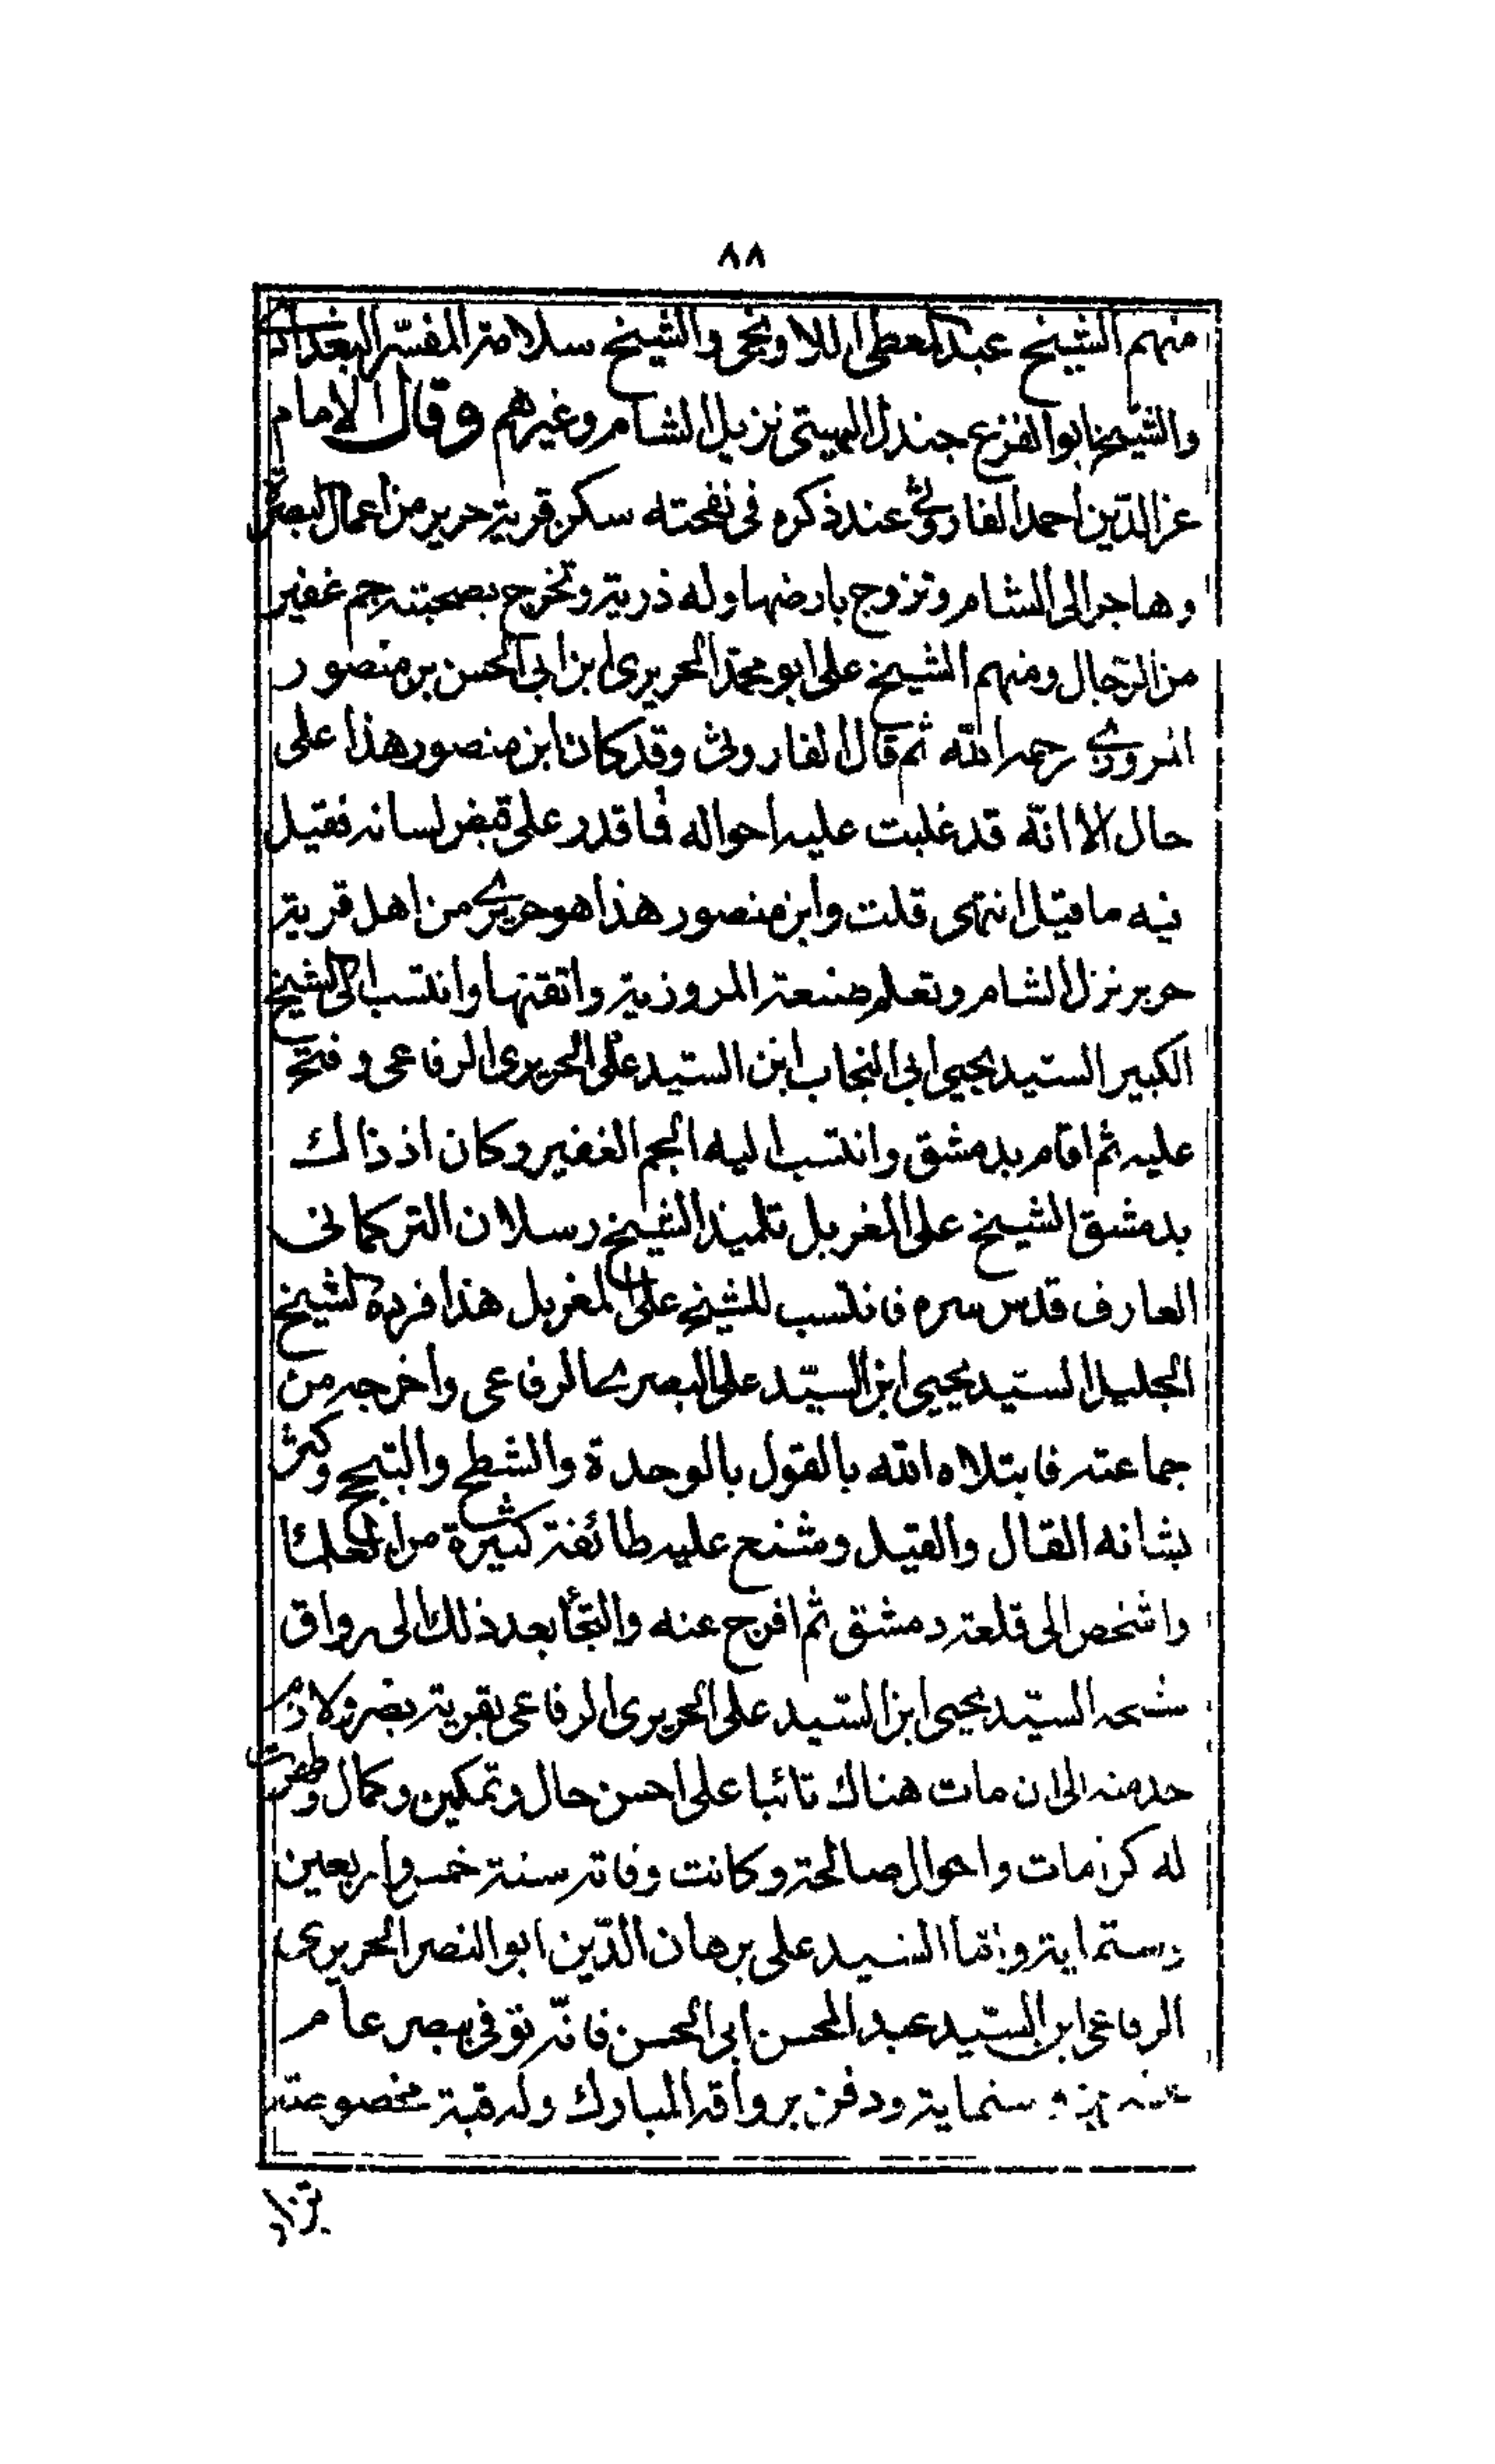 ٨٨
منهم الشيخ عبد المعطى اللاونجى والشيخ سلامة المفسر البغدادى
والشيخ ابو الفزع جندل الهيتى نزيل الشام وغيرهم وقال الامام
عز الدين احمد الفاروثى عند ذكره فى نفحته سكن قرية حرير من اعمال البصرة
وهاجر الى الشام وتزوج بارضها وله ذرية وتخرج بصحبته جم غفير
من الرجال ومنهم الشيخ على ابو محمد الحريرى ابن ابى الحسن بن منصور
المروزى رحمه الله ثم قال الفاروثى وقد كان ابن منصور هذا على
حال الا انه قد غلبت عليه احواله فما قدر على قبض لسانه فقيل
فيه ما قيل انتهى قلت وابن منصور هذا هو حريرى من اهل قرية
حرير نزل الشام وتعلم صنعة المروزية واتقنها وانتسب الى الشيخ
الكبير السيد يحيى ابى النجاب ابن السيد على الحريرى الرفاعى وفتح
عليه ثم اقام بدمشق وانتسب اليه الجم الغفير وكان اذ ذاك
بدمشق الشيخ على المغربل تلميذ الشيخ رسلان التركمانى
العارف قدس سره فانتسب للشيخ على المغربل هذا فرده الشيخ
الجليل السيد يحيى ابن السيد على البصرى الرفاعى واخرجه من
جماعته فابتلاه الله بالقول بالوحدة والشطح والتبجح وكثر
بشانه القال والقيل وشنع عليه طائفة كثيرة من العلماء
واشخص الى قلعة دمشق ثم افرج عنه والتجأ بعد ذلك الى رواق
شيخه السيد يحيى ابن السيد على الحريرى الرفاعى بقرية بصر ولازم
خدمته الى ان مات هناك تائبا على احسن حال وتمكين وكمال وظهرت
له كرامات واحوال صالحة وكانت وفاته سنة خمس واربعين
وستماية واما السيد على برهان الدين ابو النصر الحريرى
الرفاعى ابن السيد عبد المحسن ابى الحسن فانه توفى ببصر عام
وستماية ودفن برواقه المبارك وله قبة مخصوصة
تزار